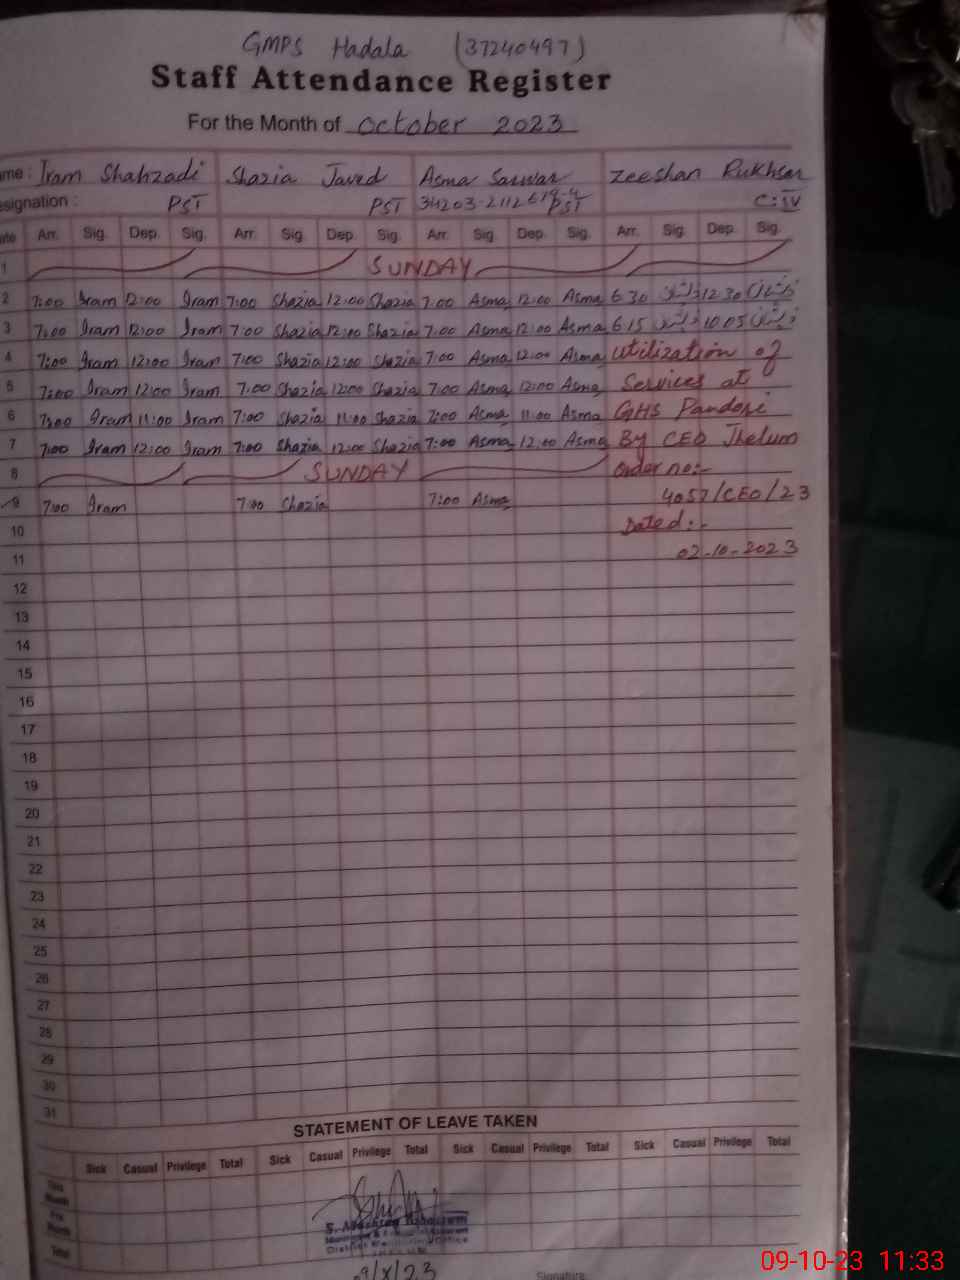 GMPS Hadala (37240497)
Staff Attendance Register
For the Month of October 2023
ame : Iram Shahzadi Shazia Javed Asma Sarwar Zeeshan Rukhsar
esignation : PST PST 34203-2112619-4 PST C-IV
ate Arr. Sig. Dep. Sig. Arr. Sig. Dep. Sig. Arr. Sig. Dep. Sig. Arr. Sig. Dep. Sig.
1 SUNDAY
2 7:00 Iram 12:00 Iram 7:00 Shazia 12:00 Shazia 7:00 Asma 12:00 Asma 6:30 12:30
3 7:00 Iram 12:00 Iram 7:00 Shazia 12:00 Shazia 7:00 Asma 12:00 Asma 6:15 10:05
4 7:00 Iram 12:00 Iram 7:00 Shazia 12:00 Shazia 7:00 Asma 12:00 Asma Utilization of
5 7:00 Iram 12:00 Iram 7:00 Shazia 12:00 Shazia 7:00 Asma 12:00 Asma Services at
6 7:00 Iram 11:00 Iram 7:00 Shazia 11:00 Shazia 7:00 Asma 11:00 Asma GHS Pandori
7 7:00 Iram 12:00 Iram 7:00 Shazia 12:00 Shazia 7:00 Asma 12:00 Asma By CEO Jhelum
8 SUNDAY Order no:-
9 7:00 Iram 7:00 Shazia 7:00 Asma 4057/CEO/23
10 Dated:-
11 02-10-2023
12
13
14
15
16
17
18
19
20
21
22
23
24
25
26
27
28
29
30
31
STATEMENT OF LEAVE TAKEN
Sick Casual Privilege Total Sick Casual Privilege Total Sick Casual Privilege Total Sick Casual Privilege Total
This Month
Total
District Monitoring Office
9/X/23
Signature
09-10-23 11:33